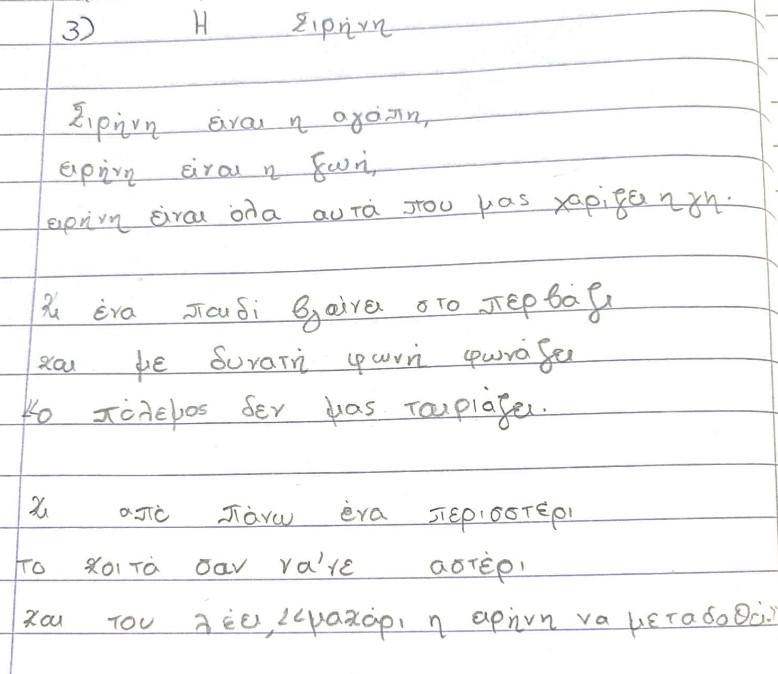 3) Η Ειρήνη
Ειρήνη είναι η αγάπη,
ειρήνη είναι η ζωή,
ειρήνη είναι όλα αυτά που μας χαρίζει η γη.
Κι ένα παιδί βγαίνει στο περβάζι
και με δυνατή φωνή φωνάζει
«ο πόλεμος δεν μας ταιριάζει.
Κι από πάνω ένα περιστέρι
το κοιτά σαν να'νε αστέρι
και του λέει, «μακάρι η ειρήνη να μεταδοθεί.»